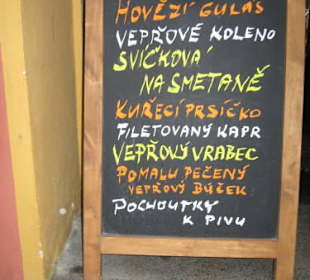 HOVĚZÍ GULÁŠ
VEPŘOVÉ KOLENO
SVÍČKOVÁ
NA SMETANĚ
KUŘECÍ PRSÍČKO
FILETOVANÝ KAPR
VEPŘOVÝ VRABEC
POMALU PEČENÝ
VEPŘOVÝ BŮČEK
POCHOUTKY
K PIVU